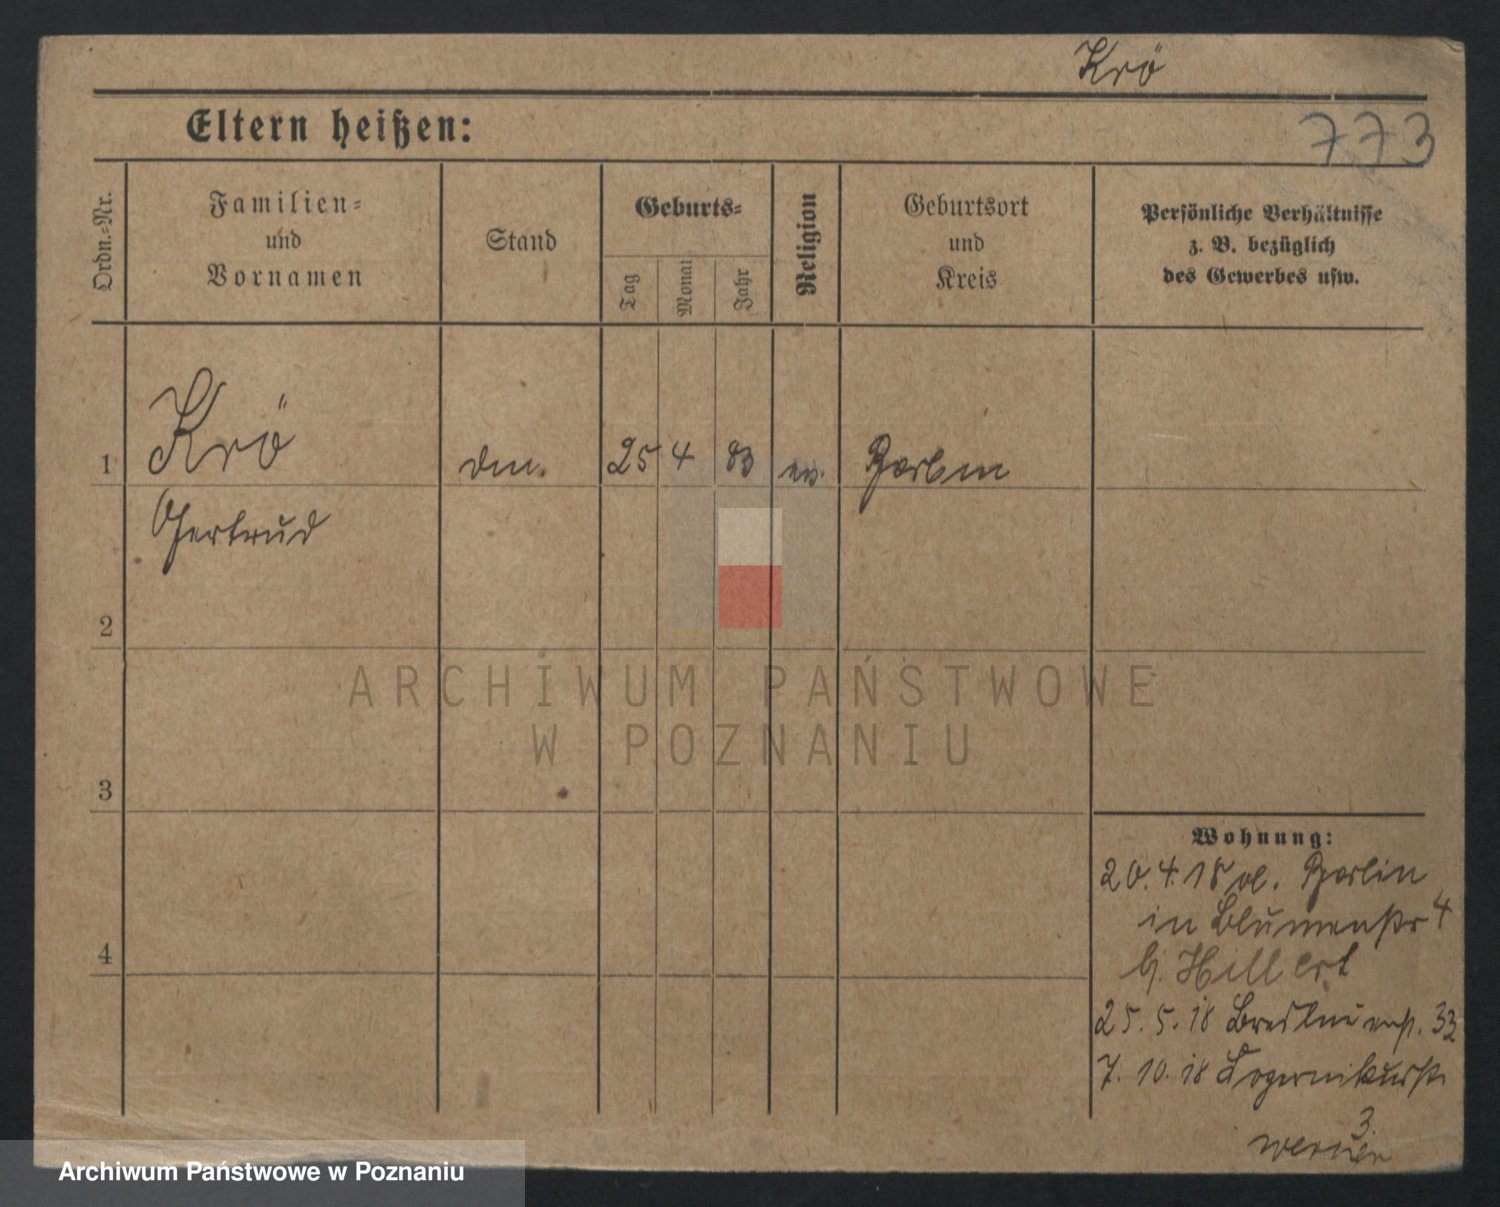 Krö
Eltern heißen:
773
Ordn.-Nr.
Familien-
und
Vornamen
Stand
Geburts-
Tag
Monat
Jahr
Religion
Geburtsort
und
Kreis
Persönliche Verhältnisse
z. B. bezüglich
des Gewerbes usw.
1
Krö
25 4 83 ev.
Gertrud
2
3
4
ARCHIWUM PAŃSTWOWE
W POZNANIU
Wohnung:
20.4.18 Berlin
in Blumenstr 4
b. Hillert
25.5.18 33
7.10.18
3.
Archiwum Państwowe w Poznaniu